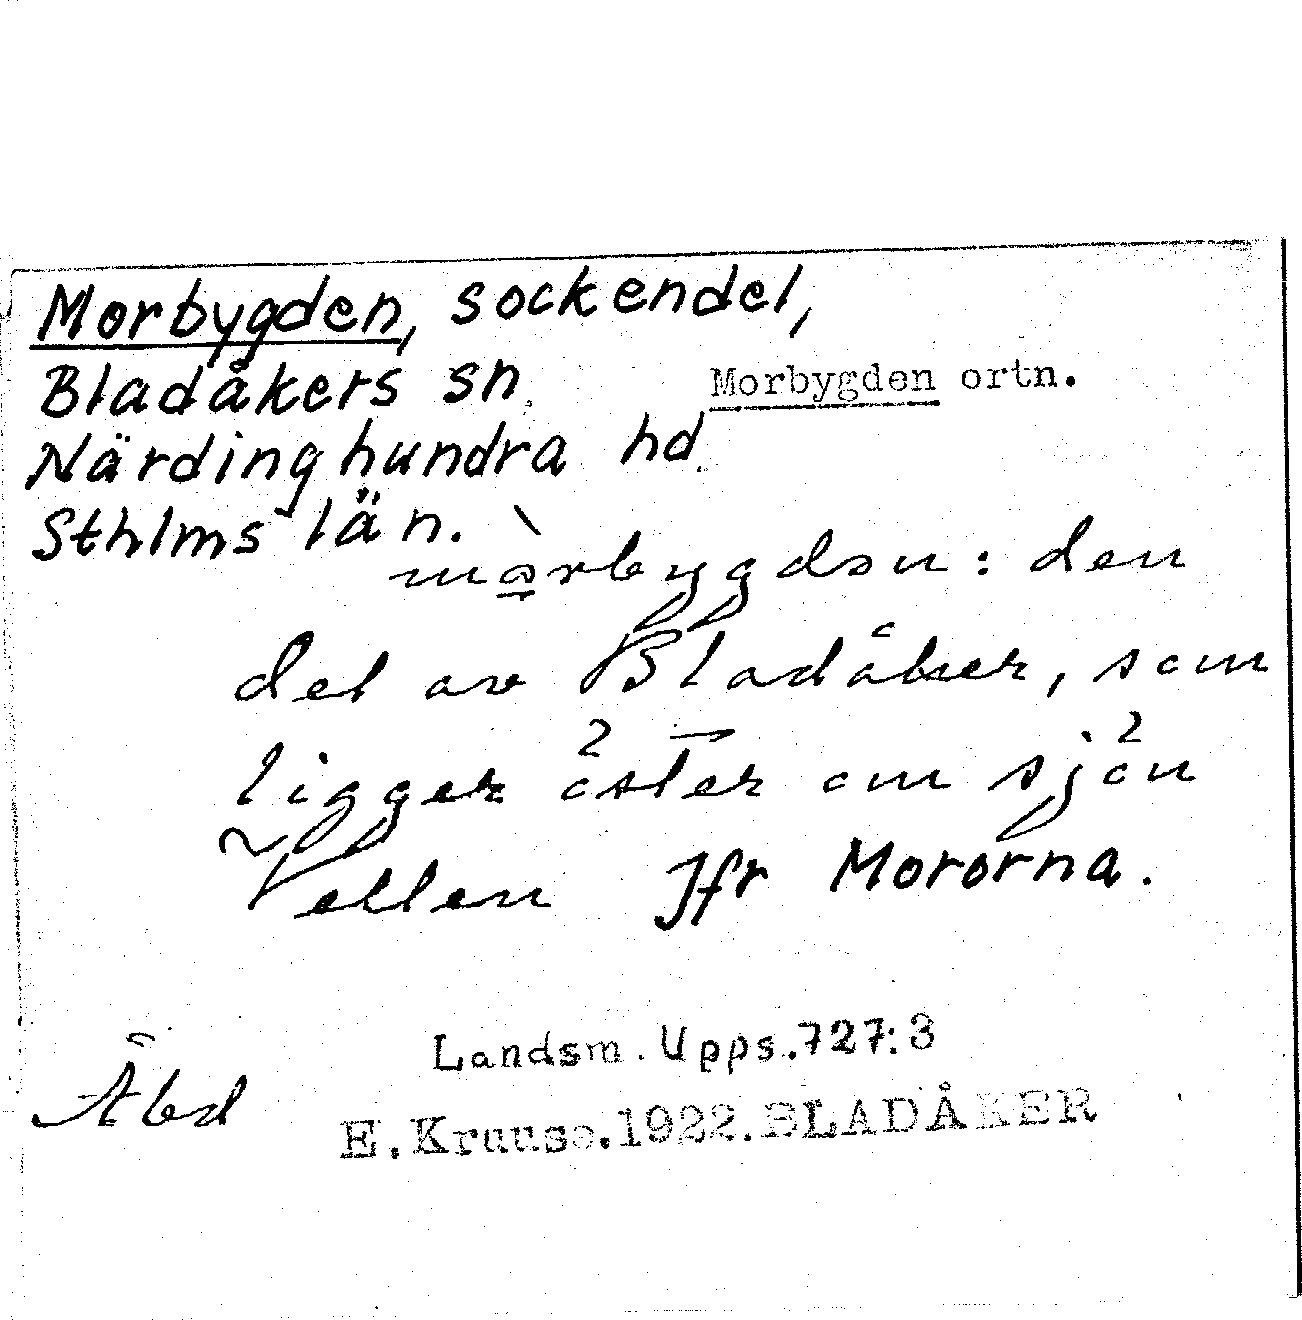 Morbygden, sockendel,
Bladåkers sn.
Morbygden ortn.
Närdinghundra hd.
Sthlms län.
mo̱rbygdən: den
del av Bladåker, som
ligger öster om sjön
Vellen Jfr Mororna.
Landsm. Upps. 727:3
Åbd
E. Krause. 1922. BLADÅKER